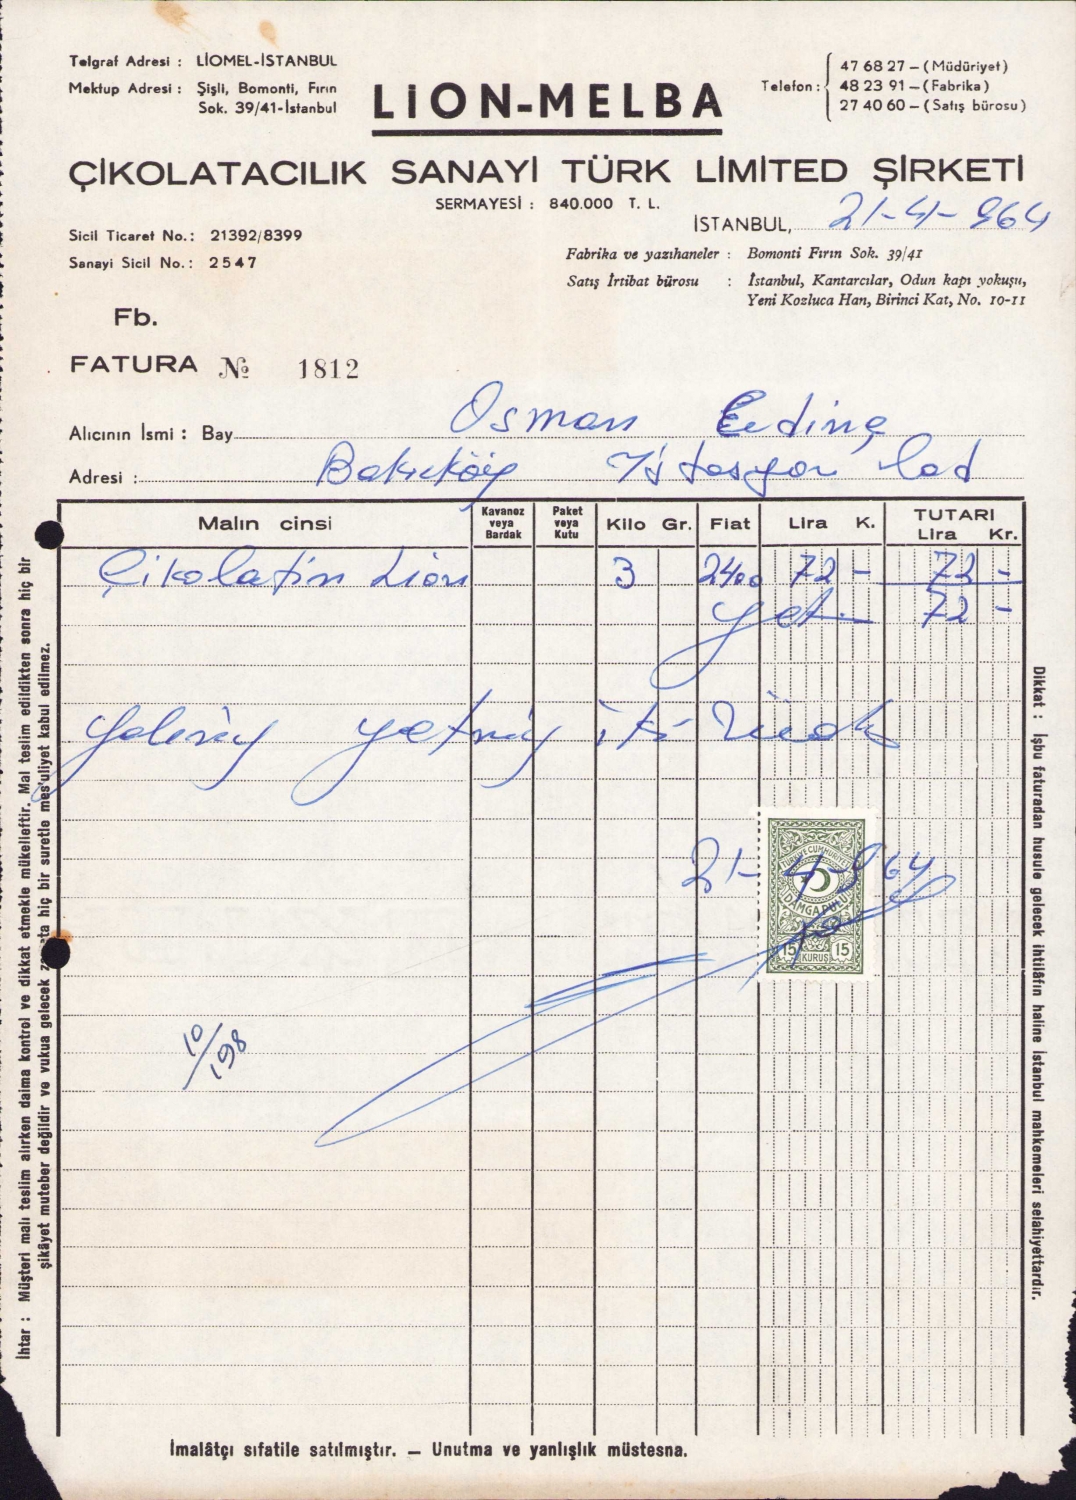 Telgraf Adresi : LİOMEL-İSTANBUL
Mektup Adresi : Şişli, Bomonti, Fırın
Sok. 39/41-İstanbul
LİON-MELBA
Telefon :
47 68 27 – (Müdüriyet)
48 23 91 – (Fabrika)
27 40 60 – (Satış bürosu)
ÇİKOLATACILIK SANAYİ TÜRK LİMİTED ŞİRKETİ
SERMAYESİ : 840.000 T. L.
İSTANBUL, 21-4-964
Sicil Ticaret No.: 21392/8399
Sanayi Sicil No.: 2547
Fabrika ve yazıhaneler : Bomonti Fırın Sok. 39/41
Satış İrtibat bürosu : İstanbul, Kantarcılar, Odun kapı yokuşu,
Yeni Kozluca Han, Birinci Kat, No. 10-11
Fb.
FATURA № 1812
Alıcının İsmi : Bay Osman Erdinç
Adresi : Bakırköy İstasyon Cad
Malın cinsi Kavanoz veya Bardak Paket veya Kutu Kilo Gr. Fiat Lira K. TUTARI Lira Kr.
Çikolatin Lion 3 2400 72 - 72 -
72 -
Yalnız yetmiş iki liradır
21-4-964
TÜRKİYE CUMHURİYETİ
DAMGA PULU
15 KURUŞ 15
10/198
İhtar : Müşteri malı teslim alırken daima kontrol ve dikkat etmekle mükelleftir. Mal teslim edildikten sonra hiç bir
şikâyet muteber değildir ve vukua gelecek hiç bir suretle mes'uliyet kabul edilmez.
Dikkat : İşbu faturadan husule gelecek ihtilâfın haline İstanbul mahkemeleri selahiyettardır.
İmalâtçı sıfatile satılmıştır. — Unutma ve yanlışlık müstesna.